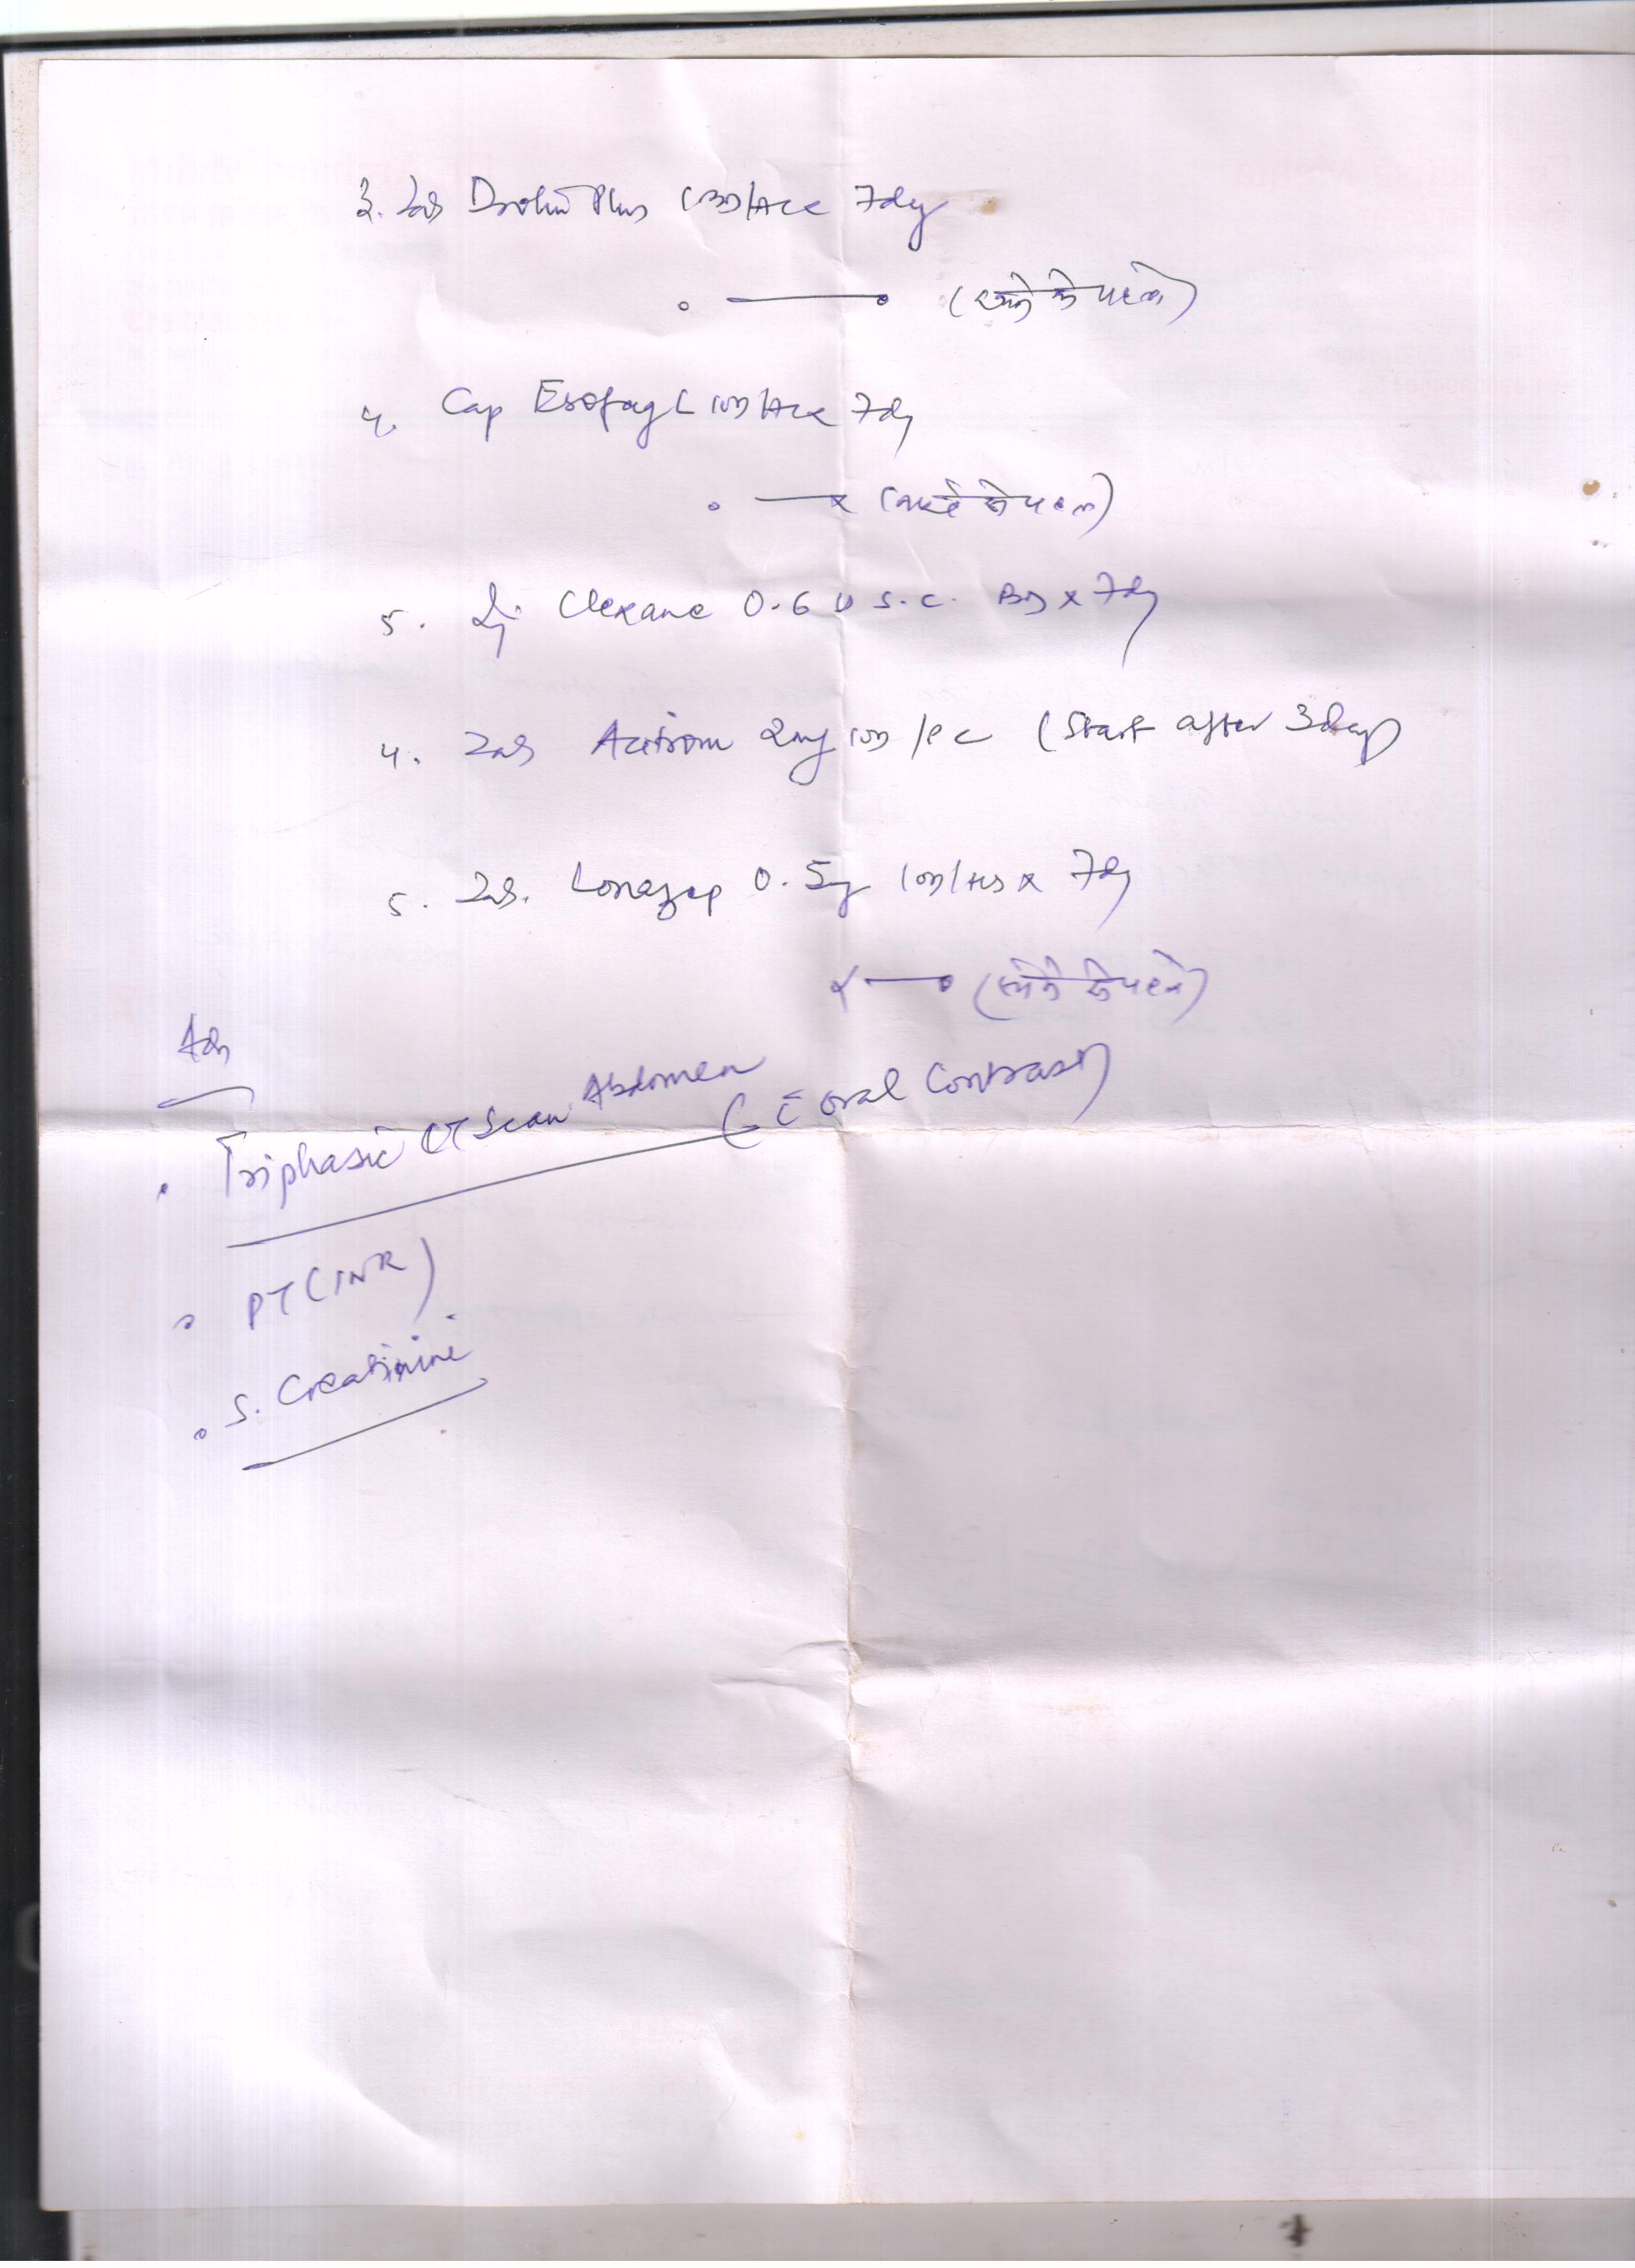 3. Tab Drotin Plus 1 BD/AC x 7day
(खाने के पहले)
4. Cap Esofag L 1 OD/AC x 7dy
(नाश्ते के पहले)
5. Inj. Clexane 0.6 s.c. BD x 7dy
4. Tab Acitrom 2mg 1 OD/PC (Start after 3days)
5. Tab. Lonazep 0.5mg 1 OD/HS x 7dy
(सोने के पहले)
Adv
• Triphasic CT Scan Abdomen (c̄ oral Contrast)
• PT (INR)
• S. Creatinine